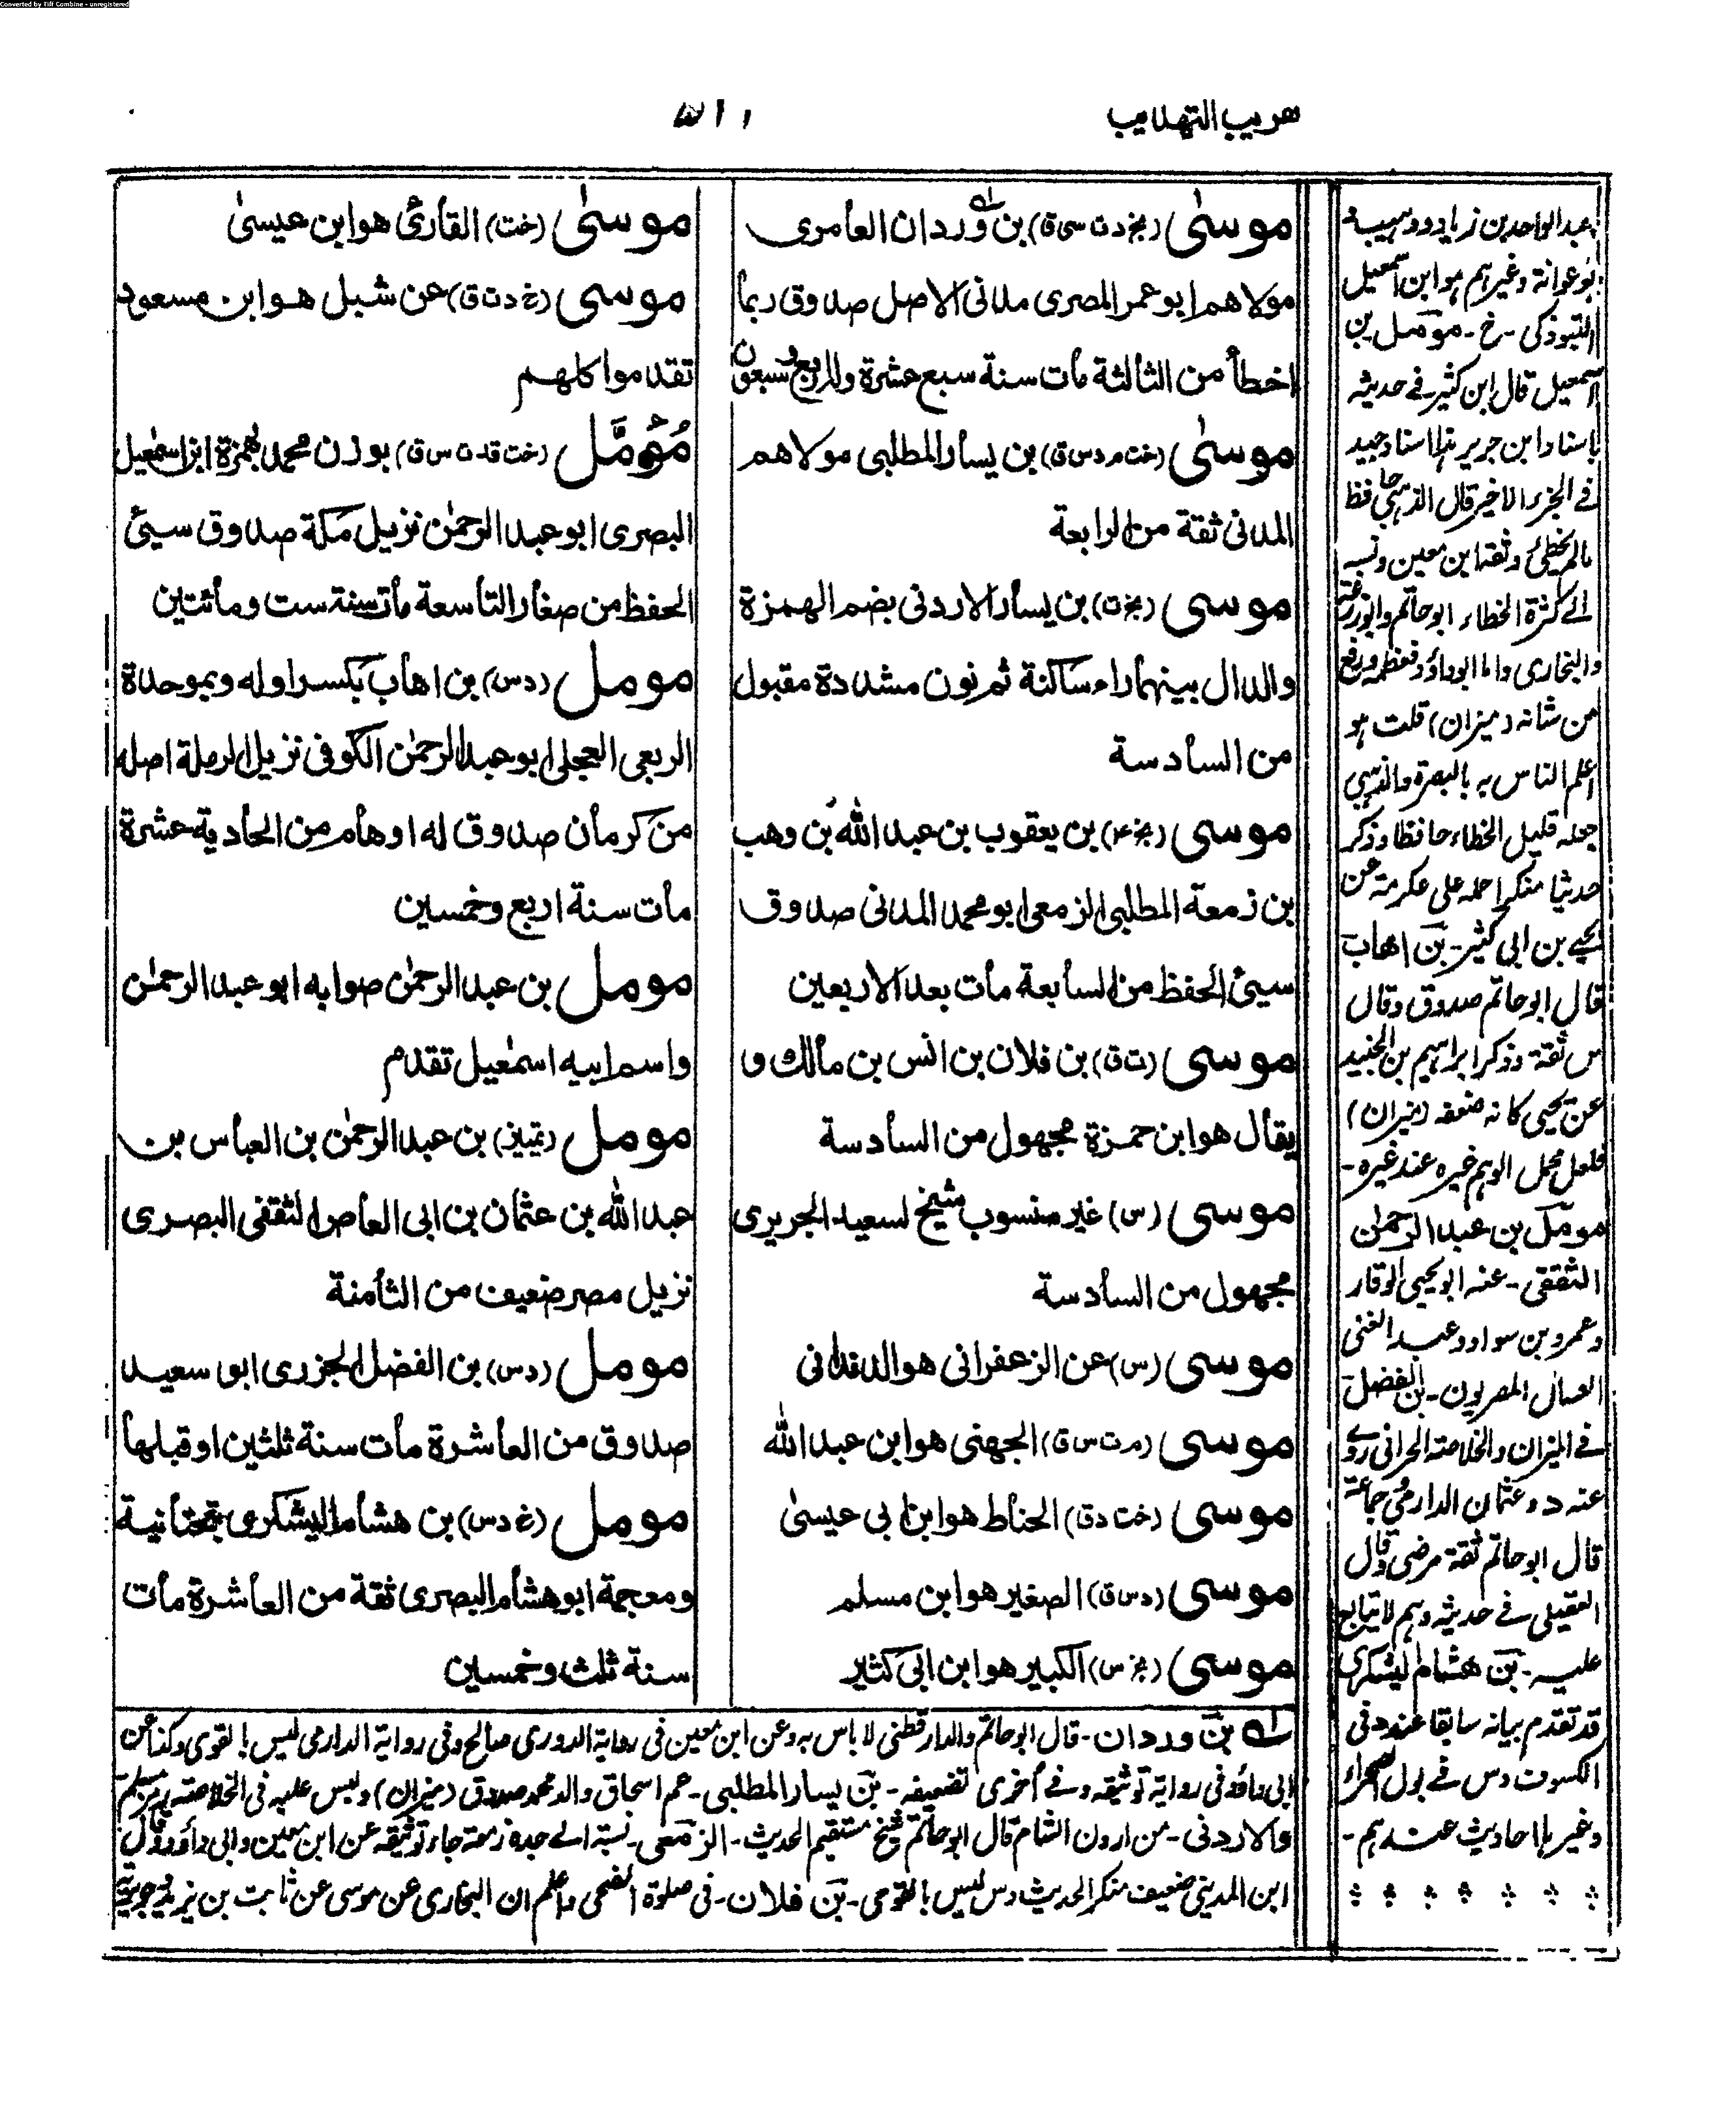 Converted by Tiff Combine - unregistered
تقريب التهذيب
موسىٰ (بخ د ت سی ق) بن وردان العامری
مولاهم ابو عمر المصری مدنی الاصل صدوق ربما
اخطأ من الثالثة مات سنة سبع عشرة وله اربع وسبعون
موسىٰ (خت م د س ق) بن يسار المطلبی مولاهم
المدنی ثقة من الرابعة
موسی (بخ ت) بن يسار الاردنی بضم الهمزة
والدال بينهما راء ساكنة ثم نون مشددة مقبول
من السادسة
موسی (بخ ٤) بن يعقوب بن عبد الله بن وهب
بن زمعة المطلبی الزمعی ابو محمد المدنی صدوق
سيئ الحفظ من السابعة مات بعد الاربعين
موسی (ت ق) بن فلان بن انس بن مالك و
يقال هو ابن حمزة مجهول من السادسة
موسی (س) غير منسوب شيخ لسعيد الجريری
مجهول من السادسة
موسی (س) عن الزعفرانی هو الدندانی
موسی (م ت س ق) الجهنی هو ابن عبد الله
موسی (خت د ق) الحناط هو ابن ابی عيسىٰ
موسی (د س ق) الصغير هو ابن مسلم
موسی (بخ س) الكبير هو ابن ابی كثير
موسىٰ (خت) القارئ هو ابن عيسىٰ
موسی (خ د ت ق) عن شبل هو ابن مسعود
تقدموا كلهم
مُؤَمَّل (خت قد ت س ق) بوزن محمد بهمزة ابن اسمٰعيل
البصری ابو عبد الرحمٰن نزيل مكة صدوق سيئ
الحفظ من صغار التاسعة مات سنة ست ومائتين
مومل (د س) بن اهاب بكسر اوله وبموحدة
الربعی العجلی ابو عبد الرحمٰن الكوفی نزيل الرملة اصله
من كرمان صدوق له اوهام من الحادية عشرة
مات سنة اربع وخمسين
مومل بن عبد الرحمٰن صوابه ابو عبد الرحمٰن
واسم ابيه اسمٰعيل تقدم
مومل (تمييز) بن عبد الرحمٰن بن العباس بن
عبد الله بن عثمان بن ابی العاص الثقفی البصری
نزيل مصر ضعيف من الثامنة
مومل (د س) بن الفضل الجزری ابو سعيد
صدوق من العاشرة مات سنة ثلثين او قبلها
مومل (خ د س) بن هشام اليشكری بتحتانية
ومعجمة ابو هشام البصری ثقة من العاشرة مات
سنة ثلث وخمسين
عبد الواحد بن زياد و وهيب و
ابو عوانة وغيرهم هو ابن اسمعيل
التبوذکی - خ - مومل بن
اسمعيل قال ابن كثير فی حديثه
باسناد ابن جرير هذا اسناد جيد
فی الجزء الاخير قال الذهبی حافظ
عالم يخطئ وثقه ابن معين ونسبه
الى كثرة الخطاء ابو حاتم وابو زرعة
والبخاری واما ابو داؤد فعظمه ورفع
من شانه (ميزان) قلت هو
اعلم الناس به بالبصرة والذهبی
جعله قليل الخطاء حافظا وذكر
حديثا منكرا حمله على عكرمة عن
يحيى بن ابی كثير - بن اهاب
قال ابو حاتم صدوق وقال
س ثقة وذكر ابراهيم بن الجنيد
عن يحيى كانه ضعفه (ميزان)
فلعل محمل الوهم غيره عند غيره -
مومل بن عبد الرحمٰن
الثقفی - عنه ابو يحيى الوقار
وعمرو بن سواد وعبد الغنی
العسال المصريون - بن الفضل
فی الميزان والخلاصة الحرانی روى
عنه د وعثمان الدارمی وجماعة
قال ابو حاتم ثقة مرضی وقال
العقيلی فی حديثه وهم لا يتابع
عليه - بن هشام اليشكری
قد تقدم بيانه سابقا عند د فی
الكسوف و س فی بول الصحراء
وغيرها احاديث عندهم -
له بن وردان - قال ابو حاتم والدارقطنی لا باس به وعن ابن معين فی رواية الدوری صالح وفی رواية الدارمی ليس بالقوی وكذا عن
ابی داؤد فی رواية توثيقه وفی أخرى تضعيفه - بن يسار المطلبی - عم اسحاق والد محمد صدوق (ميزان) وليس عليه فی الخلاصة رمز مسلم
والاردنی - من اردن الشام قال ابو حاتم شيخ مستقيم الحديث - الزمعی - نسبة الى جده زمعة جاء توثيقه عن ابن معين وابی داؤد وقال
ابن المدينی ضعيف منكر الحديث و س ليس بالقوی - بن فلان - فی صلوة الضحى واعلم ان البخاری عن موسى عن ثابت بن يزيد وجويرية